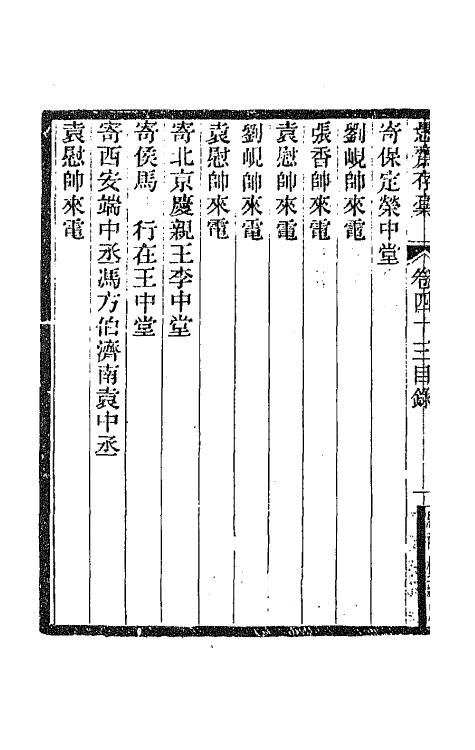 愚齋存稾 卷四十三目錄 一
寄保定榮中堂
劉峴帥來電
張香帥來電
袁慰帥來電
劉峴帥來電
袁慰帥來電
寄北京慶親王李中堂
寄侯馬 行在王中堂
寄西安端中丞馮方伯濟南袁中丞
袁慰帥來電